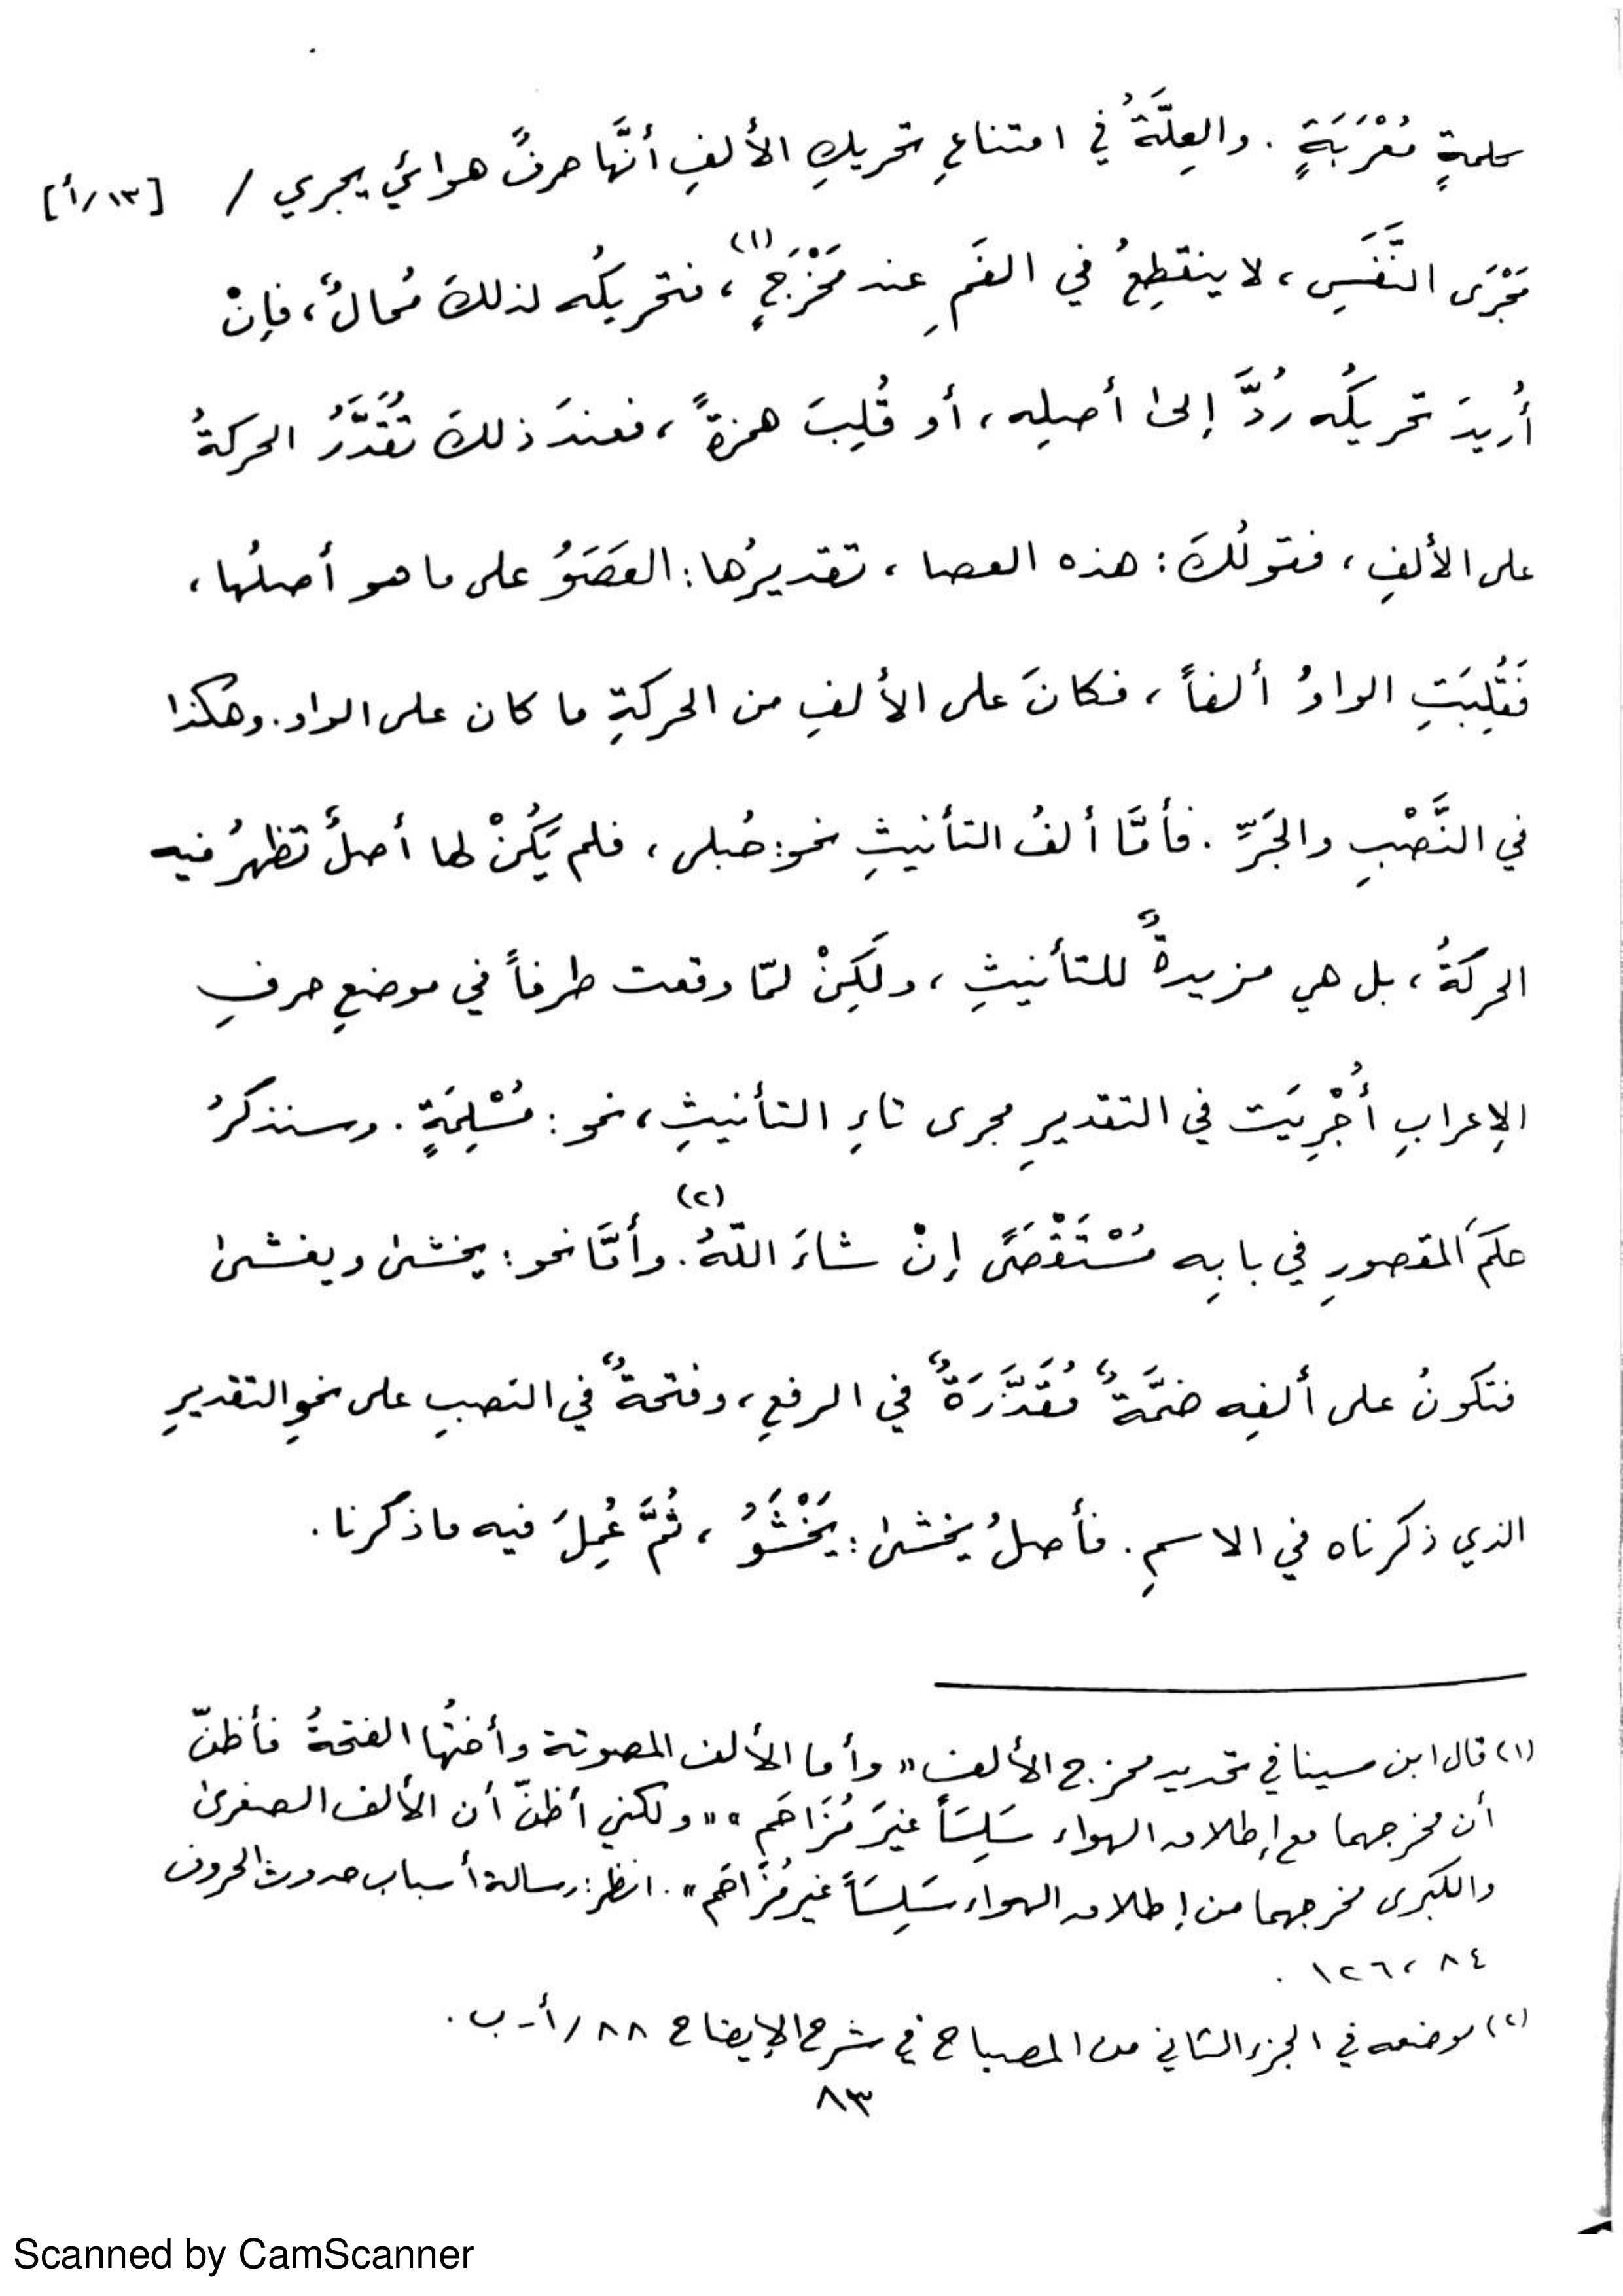 كلمةٍ مُعْرَبَةٍ . والعِلَّةُ في امتناعِ تحريكِ الألفِ أنَّها حرفٌ هوائيٌ يجري / [١٣/أ]
مَجْرَى النَّفَسِ ، لا ينقطِعُ في الفَمِ عند مَخْرَجٍ (١) ، فتحريكُه لذلكَ مُحالٌ ، فإنْ
أُريدَ تحريكُه رُدَّ إلى أصلِه ، أو قُلِبَ همزةً ، فعندَ ذلكَ تُقَدَّرُ الحركةُ
على الألفِ ، فقولُكَ : هذه العصا ، تقديرُها : العَصَوُ على ما هو أصلُها ،
فَقُلِبَتِ الواوُ ألفاً ، فكانَ على الألفِ من الحركةِ ما كان على الواو . وهكذا
في النَّصْبِ والجَرِّ . فأمَّا ألفُ التأنيثِ نحو : حُبلى ، فلم يَكُنْ لها أصلٌ تظهرُ فيه
الحركةُ ، بل هي مزيدةٌ للتأنيثِ ، ولَكِنْ لمّا وقعت طرفاً في موضعِ حرفِ
الإعرابِ أُجْرِيَت في التقديرِ مجرى تاءِ التأنيثِ ، نحو : مُسْلِمَةٍ . وسنذكرُ
حكمَ المقصورِ في بابِه مُسْتَقْصَىً إنْ شاءَ اللّهُ (٢) . وأمَّا نحو : يخشى ويغشى
فتكونُ على ألفِه ضمَّةٌ مُقَدَّرَةٌ في الرفعِ ، وفتحةٌ في النصبِ على نحوِ التقديرِ
الذي ذكرناه في الاسمِ . فأصلُ يخشى : يَخْشَوُ ، ثُمَّ عُمِلَ فيه ما ذكرنا .
(١) قال ابن سينا في تحديد مخرج الألف " وأما الألف المصوتة وأختُها الفتحةُ فأظنّ
أن مخرجهما مع إطلاق الهواء سَلِسَاً غيرَ مُزَاحَم " " ولكني أظنّ أن الألف الصغرى
والكبرى مخرجهما من إطلاق الهواء سَلِسَاً غير مُزَاحَم " . انظر : رسالة أسباب حدوث الحروف
٨٤ ، ١٢٦ .
(٢) موضعه في الجزء الثاني من المصباح في شرح الإيضاح ٨٨ / أ - ب .
٨٣
Scanned by CamScanner